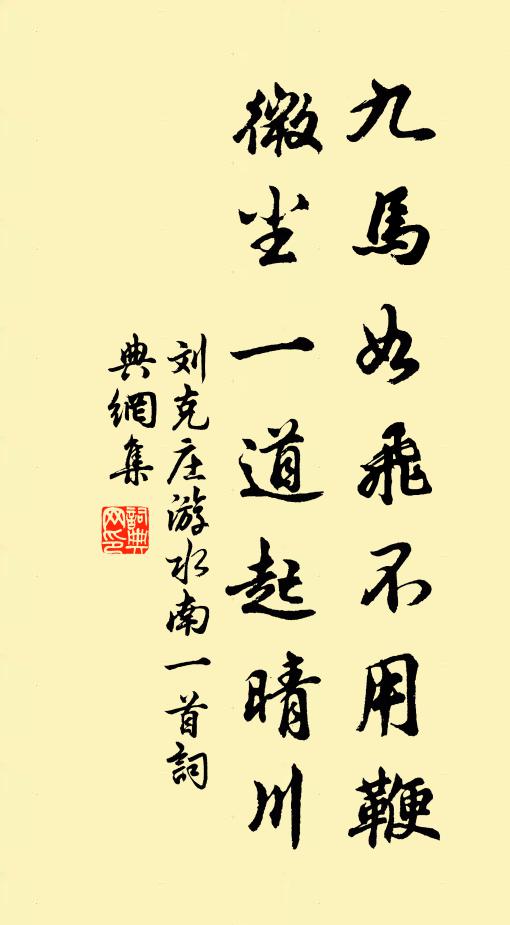 九馬如飛不用鞭
微尘一道起晴川
刘克庄游水南一首詞
典網集
詞典
网印